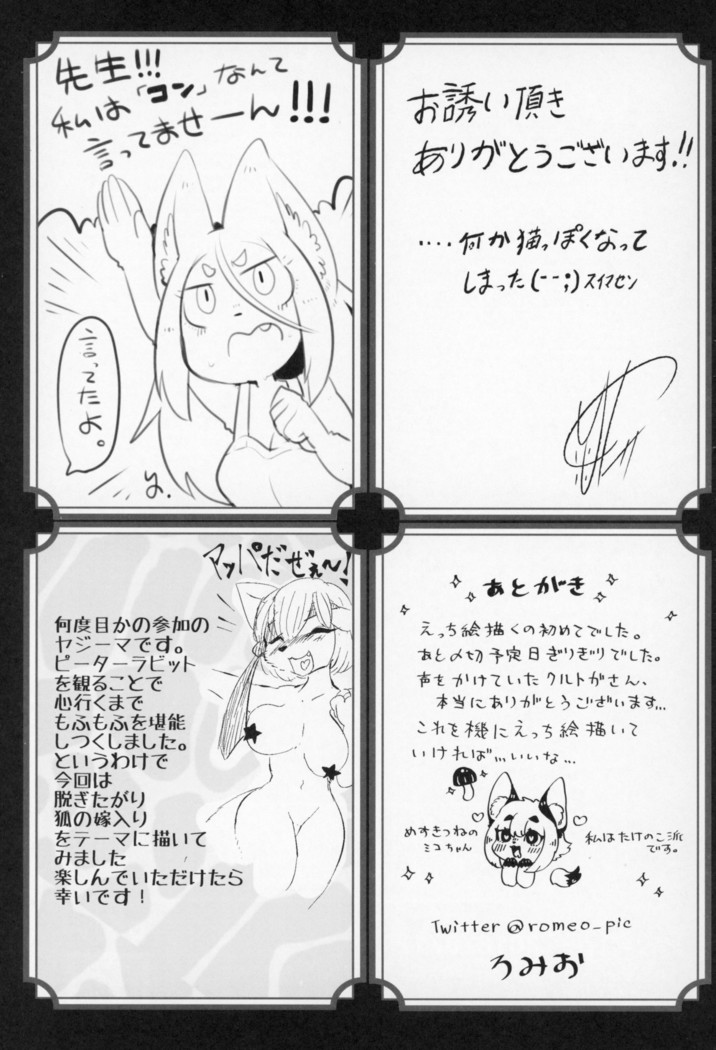 先生!!!
私は「コン」なんて
言ってませーん!!!
言ってたよ。
お誘い頂き
ありがとうございます!!
....何か猫っぽくなって
しまった(--;)スイマセン
マッパだぜぇ〜!
何度目かの参加の
ヤジーマです。
ピーターラビット
を観ることで
心行くまで
もふもふを堪能
しつくしました。
というわけで
今回は
脱ぎたがり
狐の嫁入り
をテーマに描いて
みました
楽しんでいただけたら
幸いです!
あとがき
えっち絵描くの初めてでした。
あと〆切予定日ぎりぎりでした。
声をかけていたクルトがさん、
本当にありがとうございます...
これを機にえっち絵描いて
いければ...いいな...
めすきつねの
ミコちゃん
私はたけのこ派
です。
Twitter @romeo_pic
ろみお